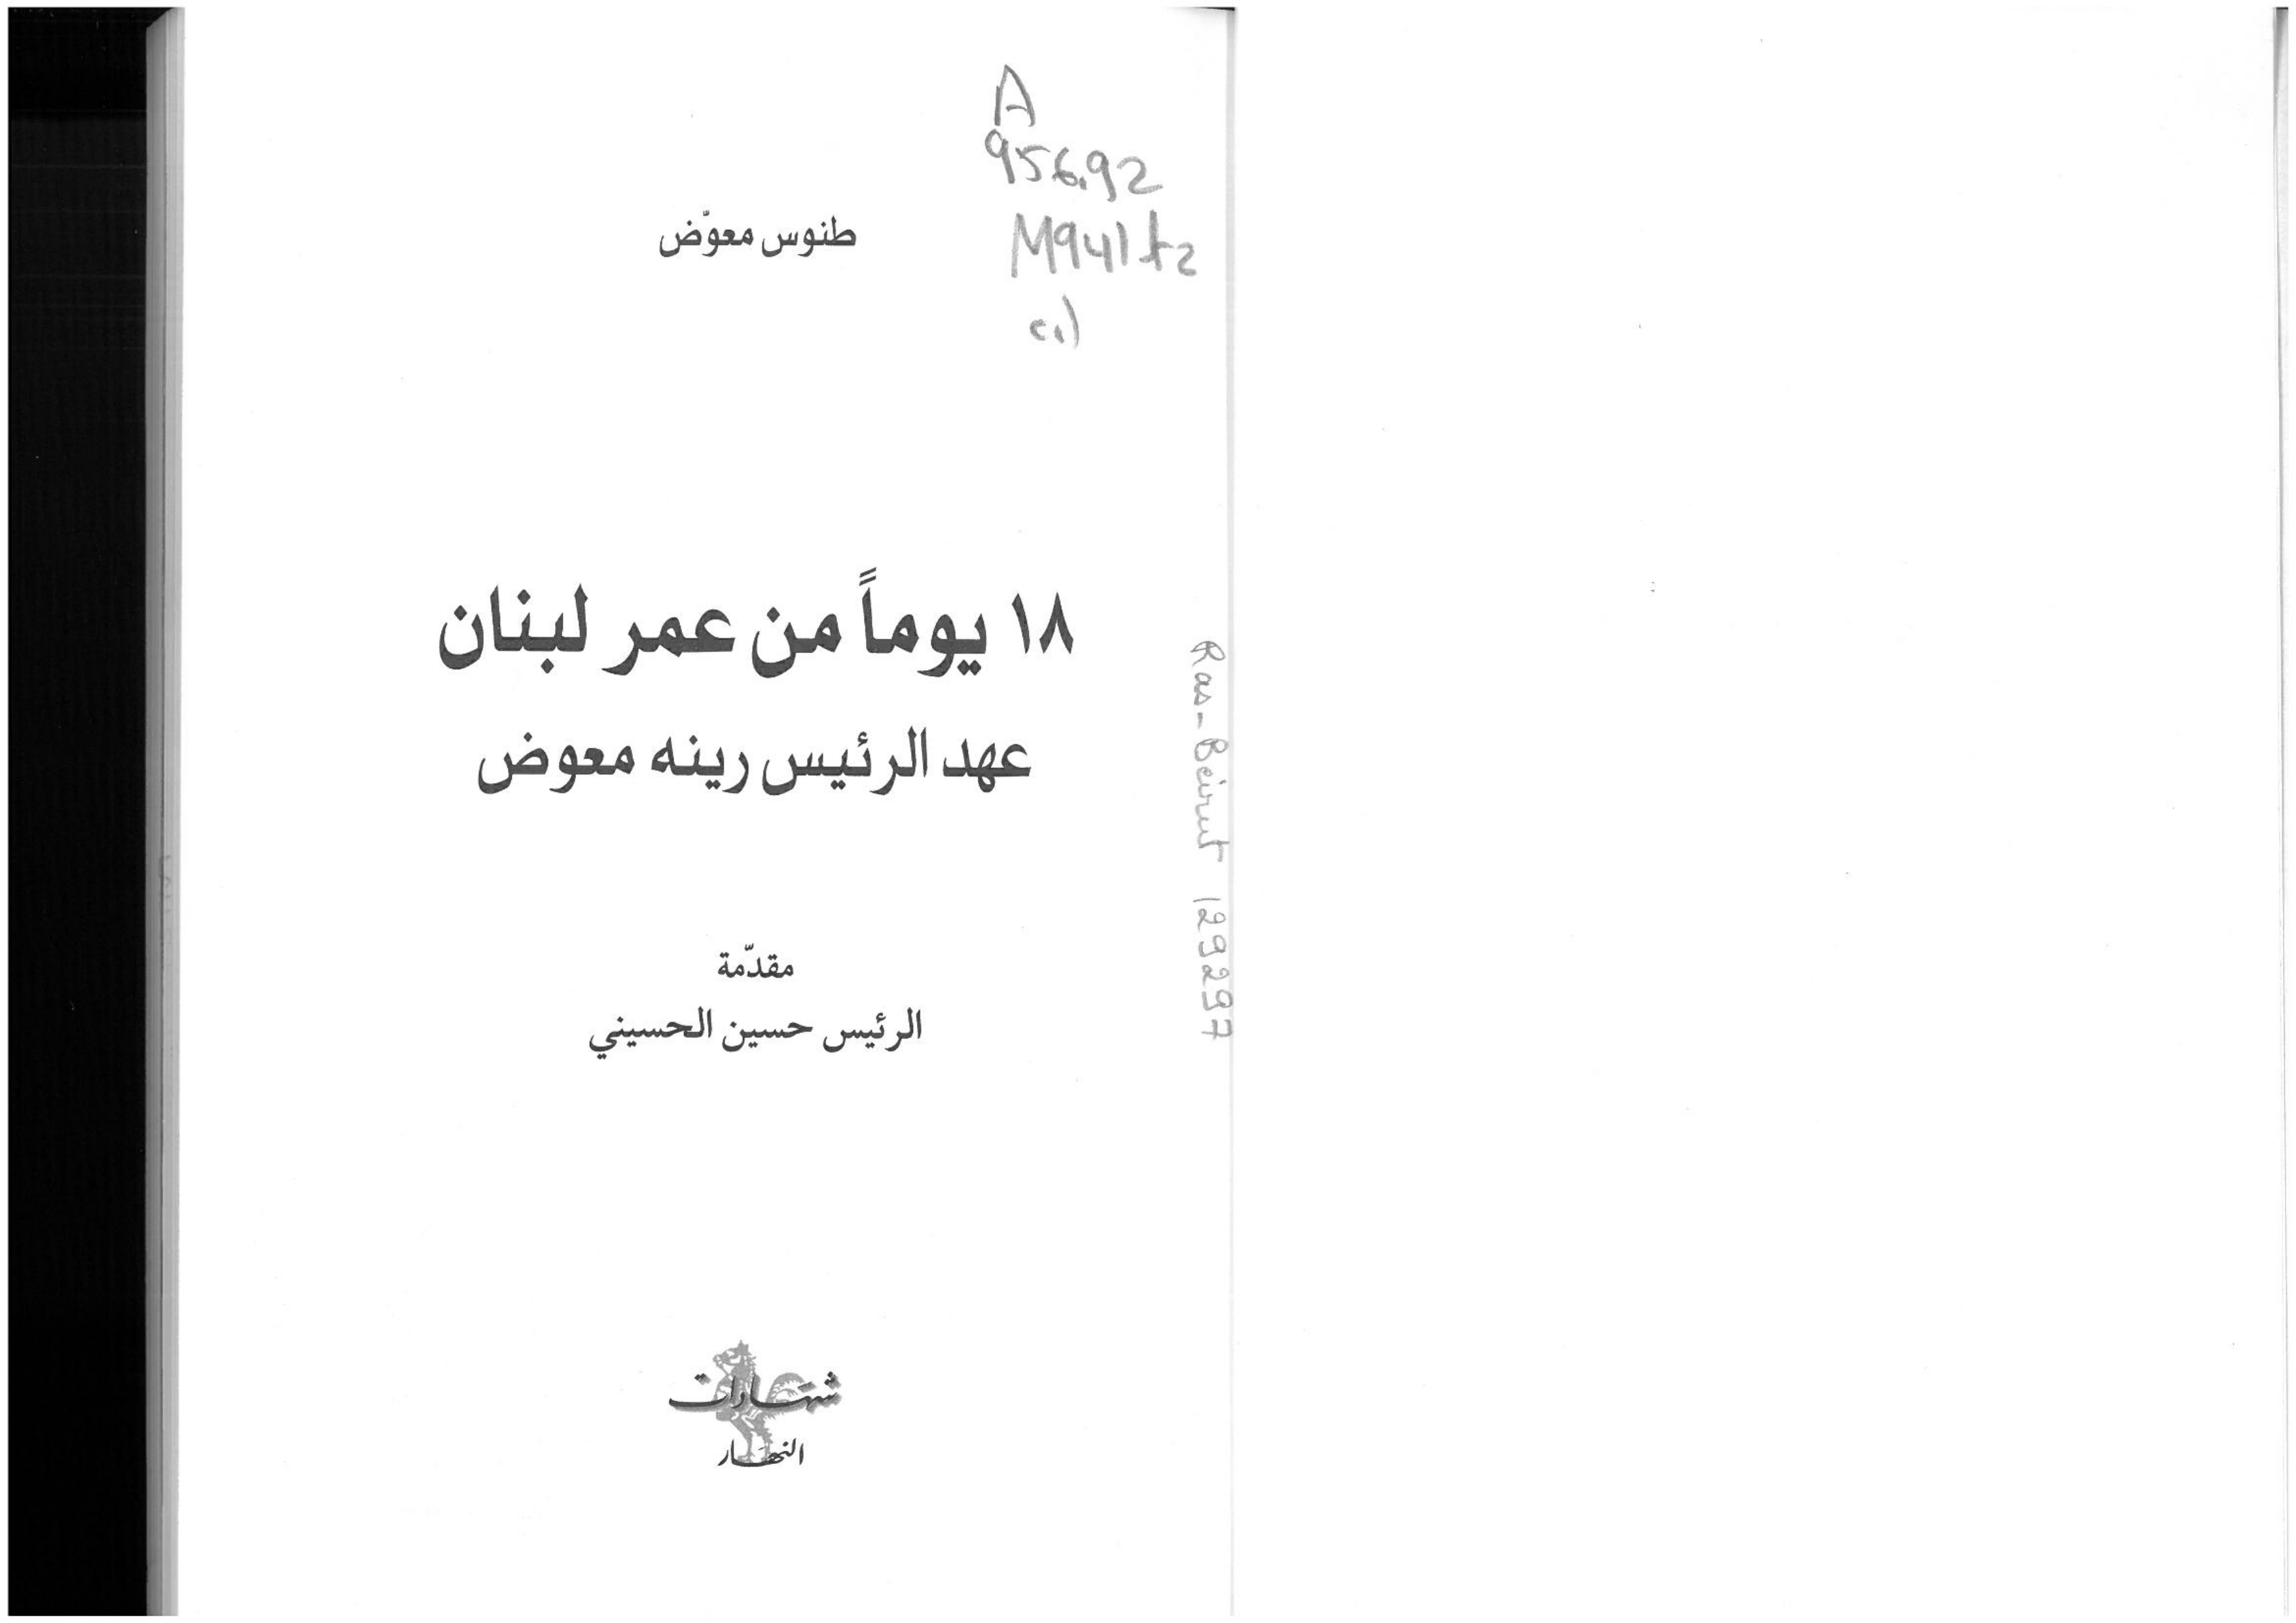 A
956.92
M941tz
c.1
طنوس معوّض
١٨ يوماً من عمر لبنان
عهد الرئيس رينه معوض
مقدّمة
الرئيس حسين الحسيني
النهار
Ras-Beirut 129297